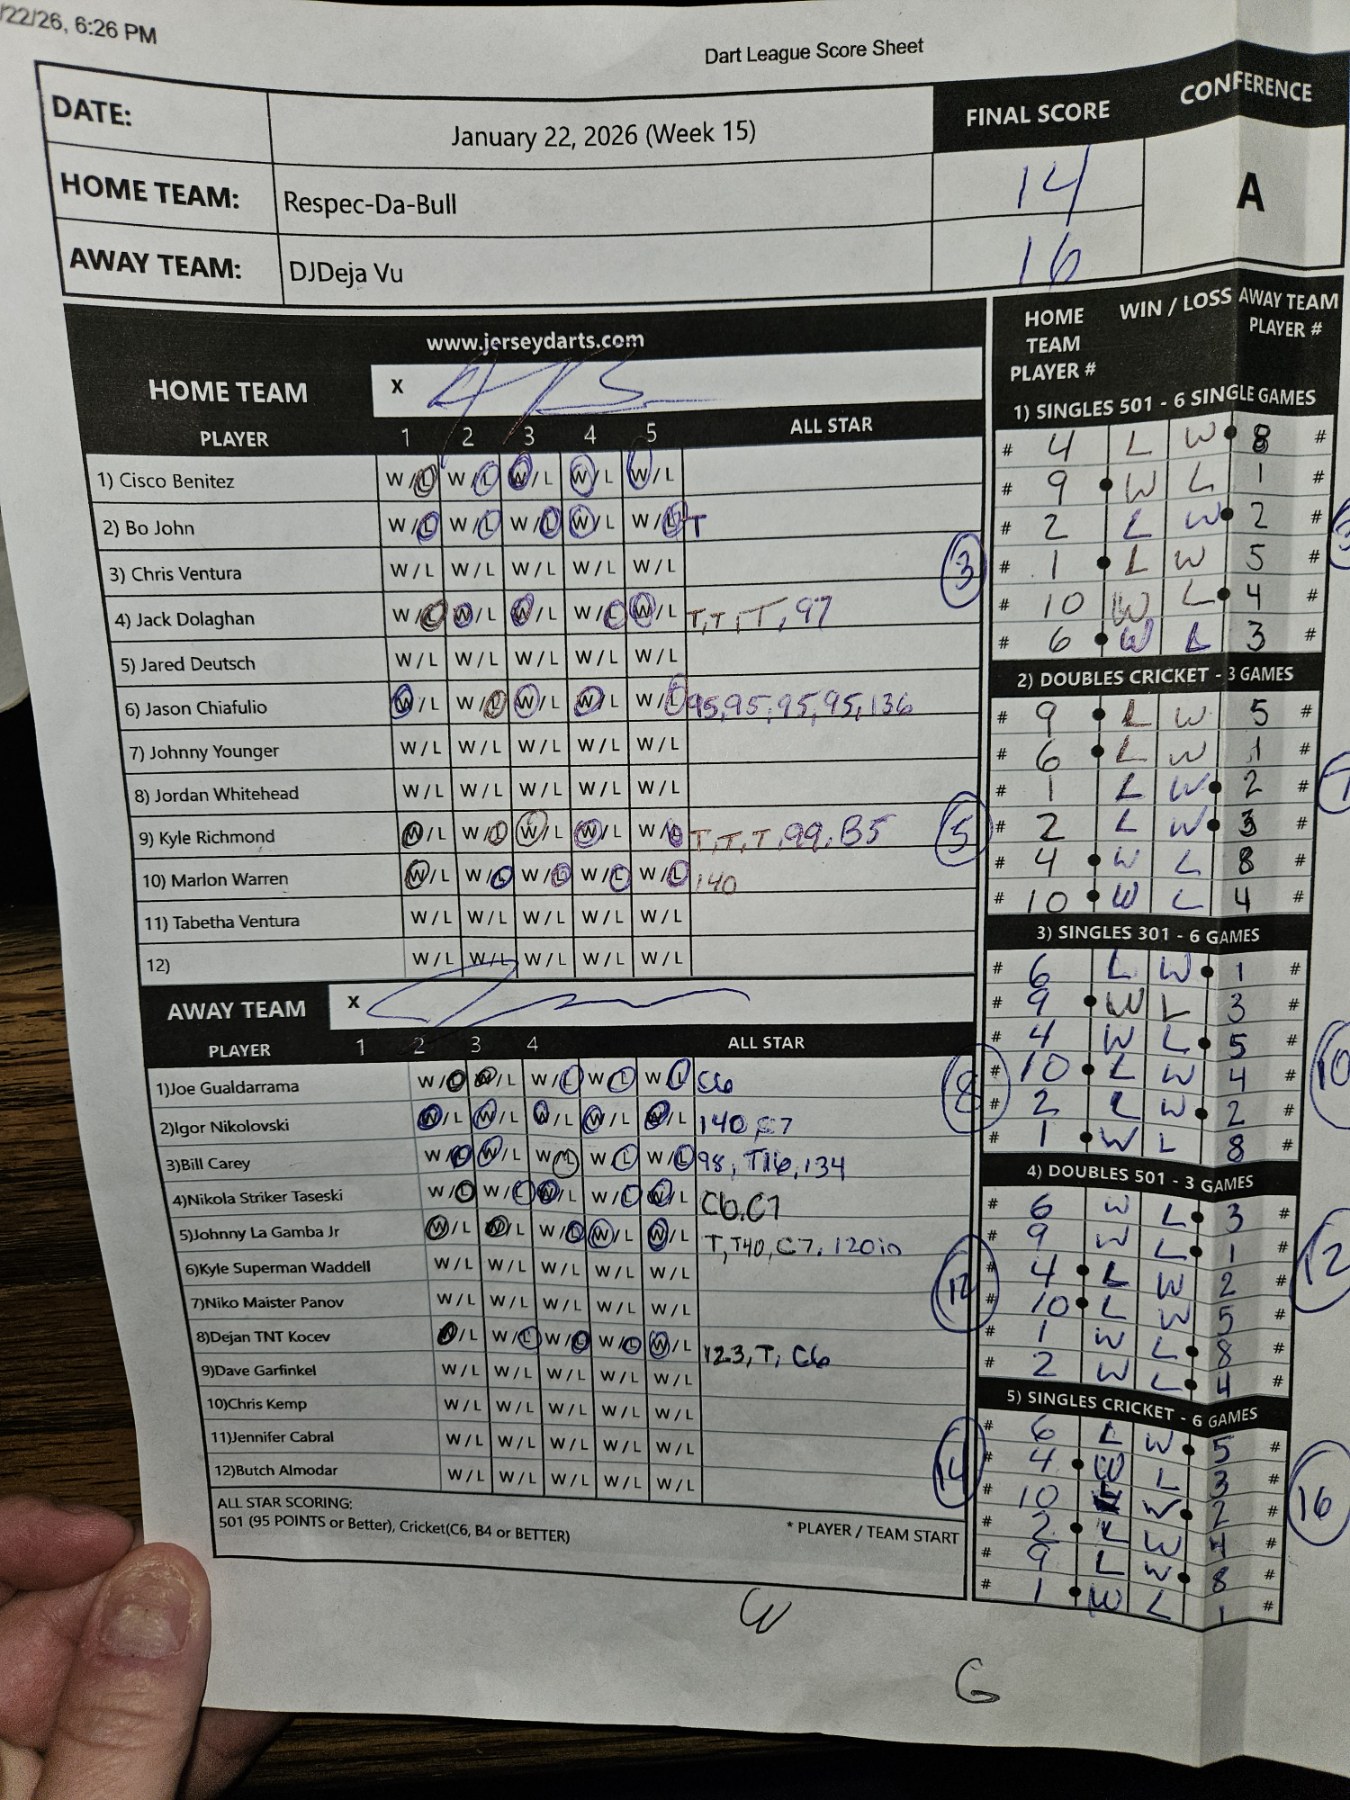 /22/26, 6:26 PM
Dart League Score Sheet
DATE: January 22, 2026 (Week 15) FINAL SCORE CONFERENCE
HOME TEAM: Respec-Da-Bull 14 A
AWAY TEAM: DJDeja Vu 16
www.jerseydarts.com
HOME TEAM X
PLAYER 1 2 3 4 5 ALL STAR
1) Cisco Benitez W/L W/L W/L W/L W/L
2) Bo John W/L W/L W/L W/L W/L T
3) Chris Ventura W/L W/L W/L W/L W/L 3
4) Jack Dolaghan W/L W/L W/L W/L W/L T, T, T, 97
5) Jared Deutsch W/L W/L W/L W/L W/L
6) Jason Chiafulio W/L W/L W/L W/L W/L 95, 95, 95, 95, 136
7) Johnny Younger W/L W/L W/L W/L W/L
8) Jordan Whitehead W/L W/L W/L W/L W/L
9) Kyle Richmond W/L W/L W/L W/L W/L T, T, T, 99, B5 5
10) Marlon Warren W/L W/L W/L W/L W/L 140
11) Tabetha Ventura W/L W/L W/L W/L W/L
12) W/L W/L W/L W/L W/L
AWAY TEAM X
PLAYER 1 2 3 4 ALL STAR
1)Joe Gualdarrama W/L W/L W/L W/L W/L C6 8
2)Igor Nikolovski W/L W/L W/L W/L W/L 140 C7
3)Bill Carey W/L W/L W/L W/L W/L 98, T16, 134
4)Nikola Striker Taseski W/L W/L W/L W/L W/L C6, C7
5)Johnny La Gamba Jr W/L W/L W/L W/L W/L T, T40, C7, 120in
6)Kyle Superman Waddell W/L W/L W/L W/L W/L
7)Niko Maister Panov W/L W/L W/L W/L W/L
8)Dejan TNT Kocev W/L W/L W/L W/L W/L 123, T, C6
9)Dave Garfinkel W/L W/L W/L W/L W/L
10)Chris Kemp W/L W/L W/L W/L W/L
11)Jennifer Cabral W/L W/L W/L W/L W/L
12)Butch Almodar W/L W/L W/L W/L W/L 14
ALL STAR SCORING:
501 (95 POINTS or Better), Cricket(C6, B4 or BETTER)
* PLAYER / TEAM START
HOME TEAM PLAYER # WIN / LOSS AWAY TEAM PLAYER #
1) SINGLES 501 - 6 SINGLE GAMES
# 4 L W 8 #
# 9 W L 1 #
# 2 L W 2 #
# 1 L W 5 #
# 10 W L 4 #
# 6 W L 3 #
2) DOUBLES CRICKET - 3 GAMES
# 9 L W 5 #
# 6 L W 1 #
# 1 L W 2 #
# 2 L W 3 #
# 4 W L 8 #
# 10 W L 4 #
3) SINGLES 301 - 6 GAMES
# 6 L W 1 #
# 9 W L 3 #
# 4 W L 5 #
# 10 L W 4 # 10
# 2 L W 2 #
# 1 W L 8 #
4) DOUBLES 501 - 3 GAMES
# 6 W L 3 #
# 9 W L 1 #
# 4 L W 2 # 12
# 10 L W 5 #
# 1 W L 8 #
# 2 W L 4 #
5) SINGLES CRICKET - 6 GAMES
# 6 L W 5 #
# 4 W L 3 #
# 10 W 2 # 16
# 2 L W 4 #
# 9 L W 8 #
# 1 W L 1 #
W
G